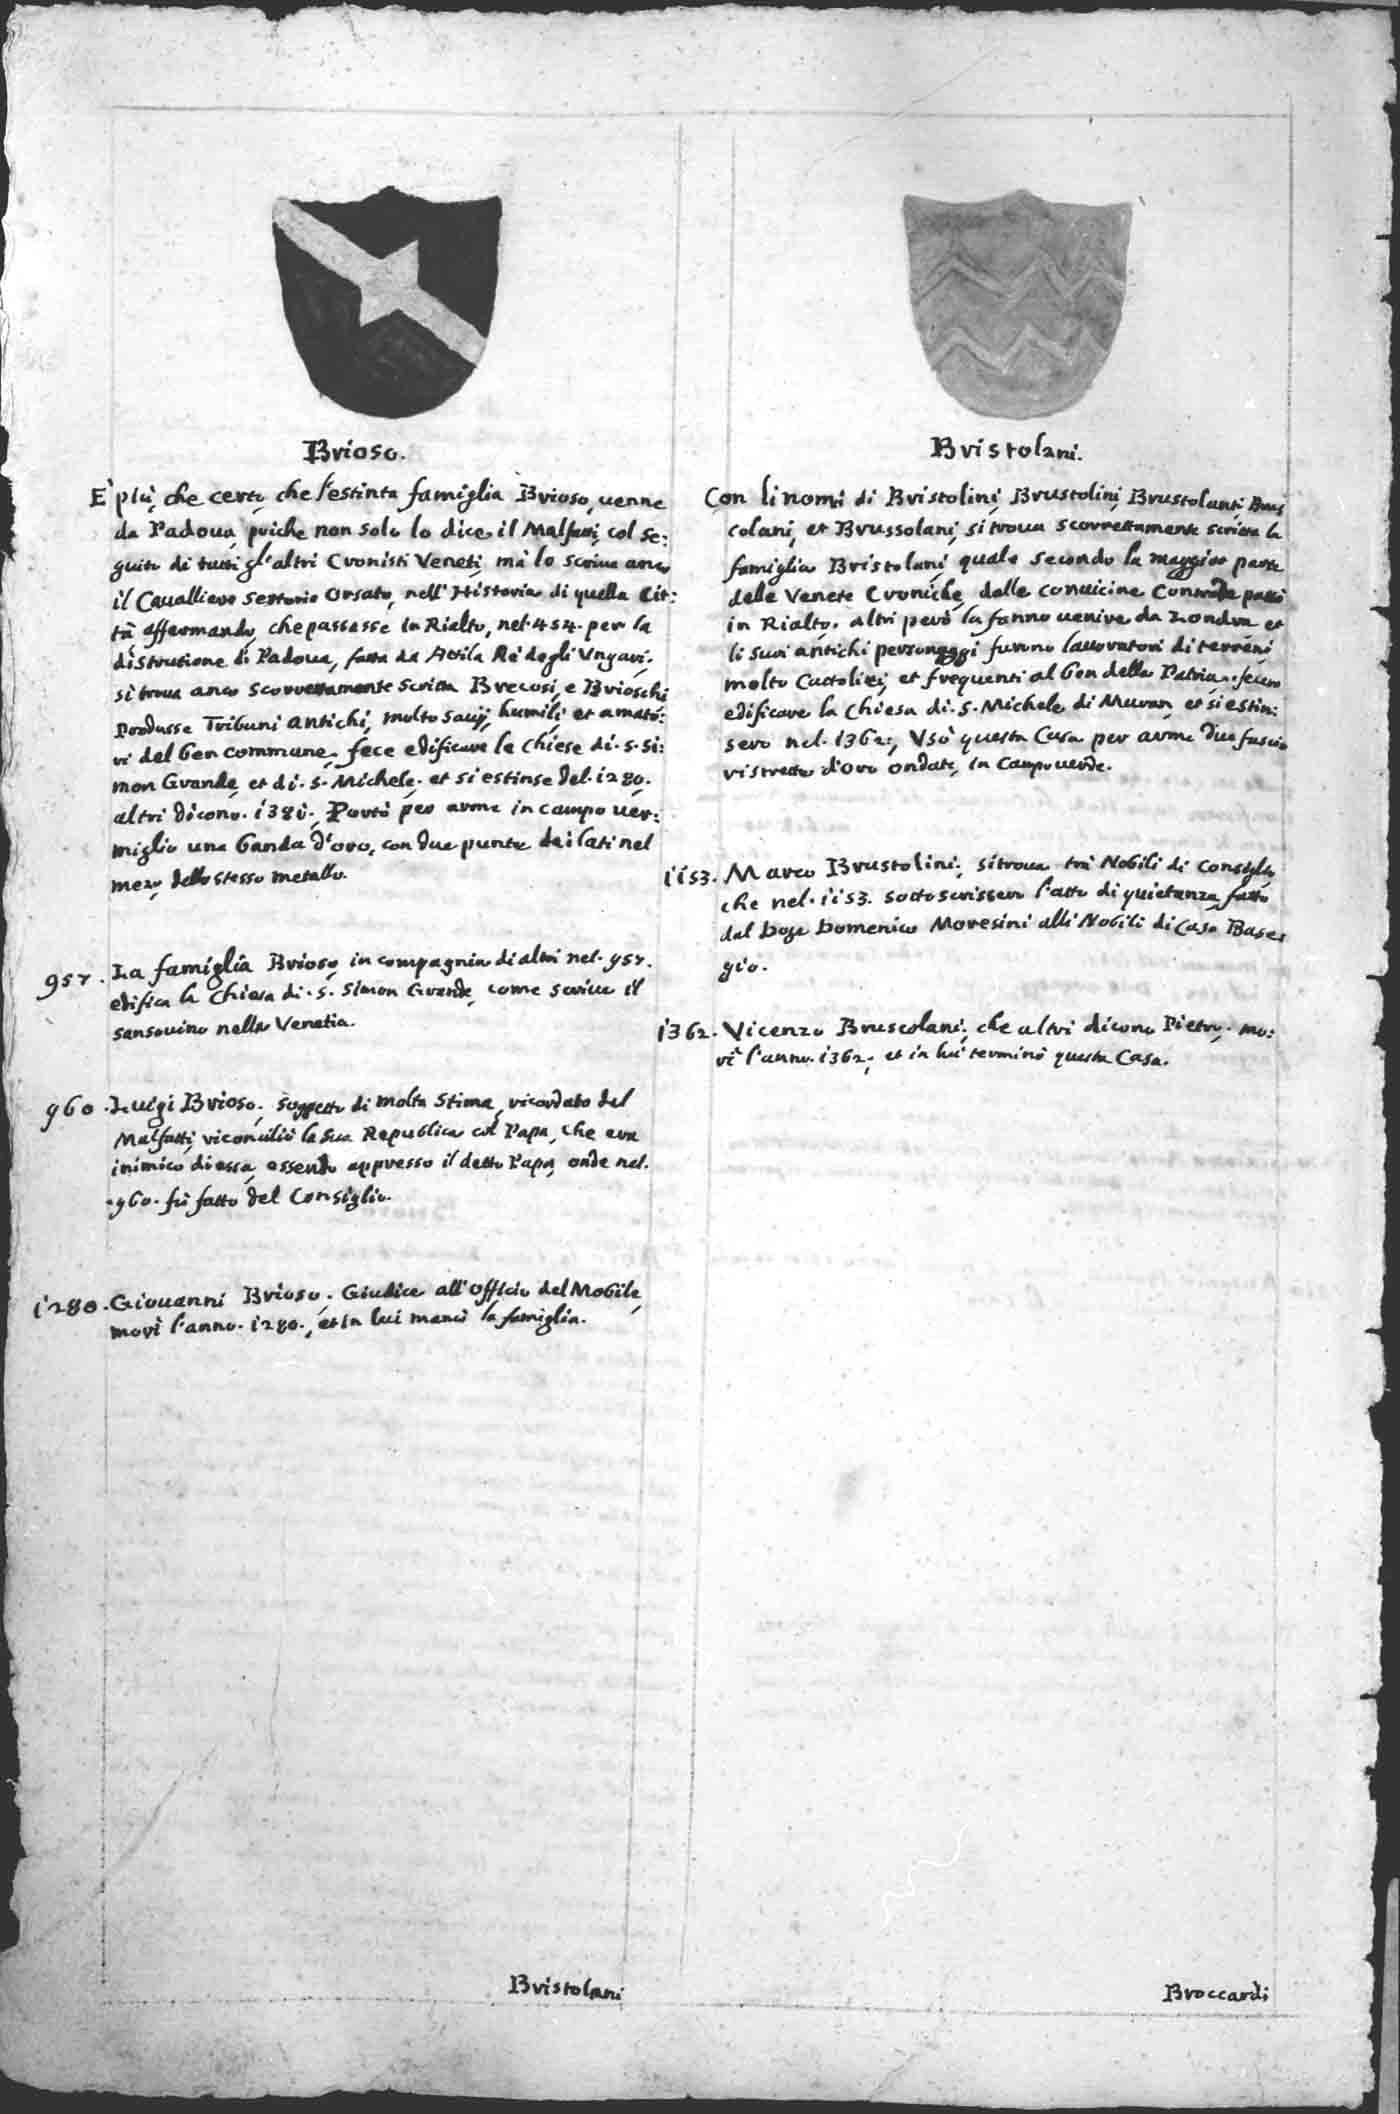 Brioso.
E' più, che certo, che l'estinta famiglia Brioso, uenne
da Padoua, poiche non solo lo dice il Malfatti, col se:
guito di tutti gl'altri Cronisti Veneti, mà lo scriue anco
il Caualliere Sertorio Orsato, nell'Historia di quella Cit:
tà affermando, che passasse in Rialto, nel 454. per la
distrutione di Padoua, fatta da Attila Rè degli Vngari.
si troua anco scorrettamente scritta Brecosi, e Brioschi
Produsse Tribuni antichi, molto sauij, humili et amato:
ri del ben commune, fece edificare le chiese di S. Si:
mon Grande, et di S. Michele. et si estinse del 1280.
altri dicono. 1381. Portò per arme in campo uer:
miglio una banda d'oro, con due punte dai lati nel
mezo dello stesso metallo.
957. La famiglia Brioso, in compagnia di altri nel. 957.
edifica la Chiesa di S. Simon Grande, come scriue il
Sansouino nella Venetia.
960. Luigi Brioso, soggetto di molta stima, ricordato dal
Malfatti, riconciliò la sua Republica col Papa, che era
inimico di essa, essendo appresso il detto Papa, onde nel.
960. fù fatto del Consiglio.
1280. Giouanni Brioso. Giudice all'Officio del Mobile,
morì l'anno. 1280., et in lui mancò la famiglia.
Bristolani
Bristolani.
Con li nomi di Bristolini, Brustolini, Brustolanti, Brus
colani, et Brussolani, si troua scorrettamente scritta la
famiglia Bristolani, quale secondo la maggior parte
delle Venete Croniche, dalle conuicine Contrade passò
in Rialto. altri però la fanno uenire da Londra et
li suoi antichi personaggi furono lauoratori di terreni
molto Cattolici, et frequenti al ben della Patria. fecero
edificare la Chiesa di S. Michele di Muran, et si estin:
sero nel. 1362., Vsò questa Casa per arme due fascie
ristrette d'oro ondate, in Campo uerde.
1153. Marco Brustolini, si troua trà Nobili di Consiglio,
che nel. 1153. sottoscrissero l'atto di quietanza, fatto
dal Doge Domenico Moresini alli Nobili di Casa Basea
gio.
1362. Vicenzo Bruscolani, che altri dicono Pietro, mo:
rì l'anno. 1362., et in lui terminò questa Casa.
Broccardi